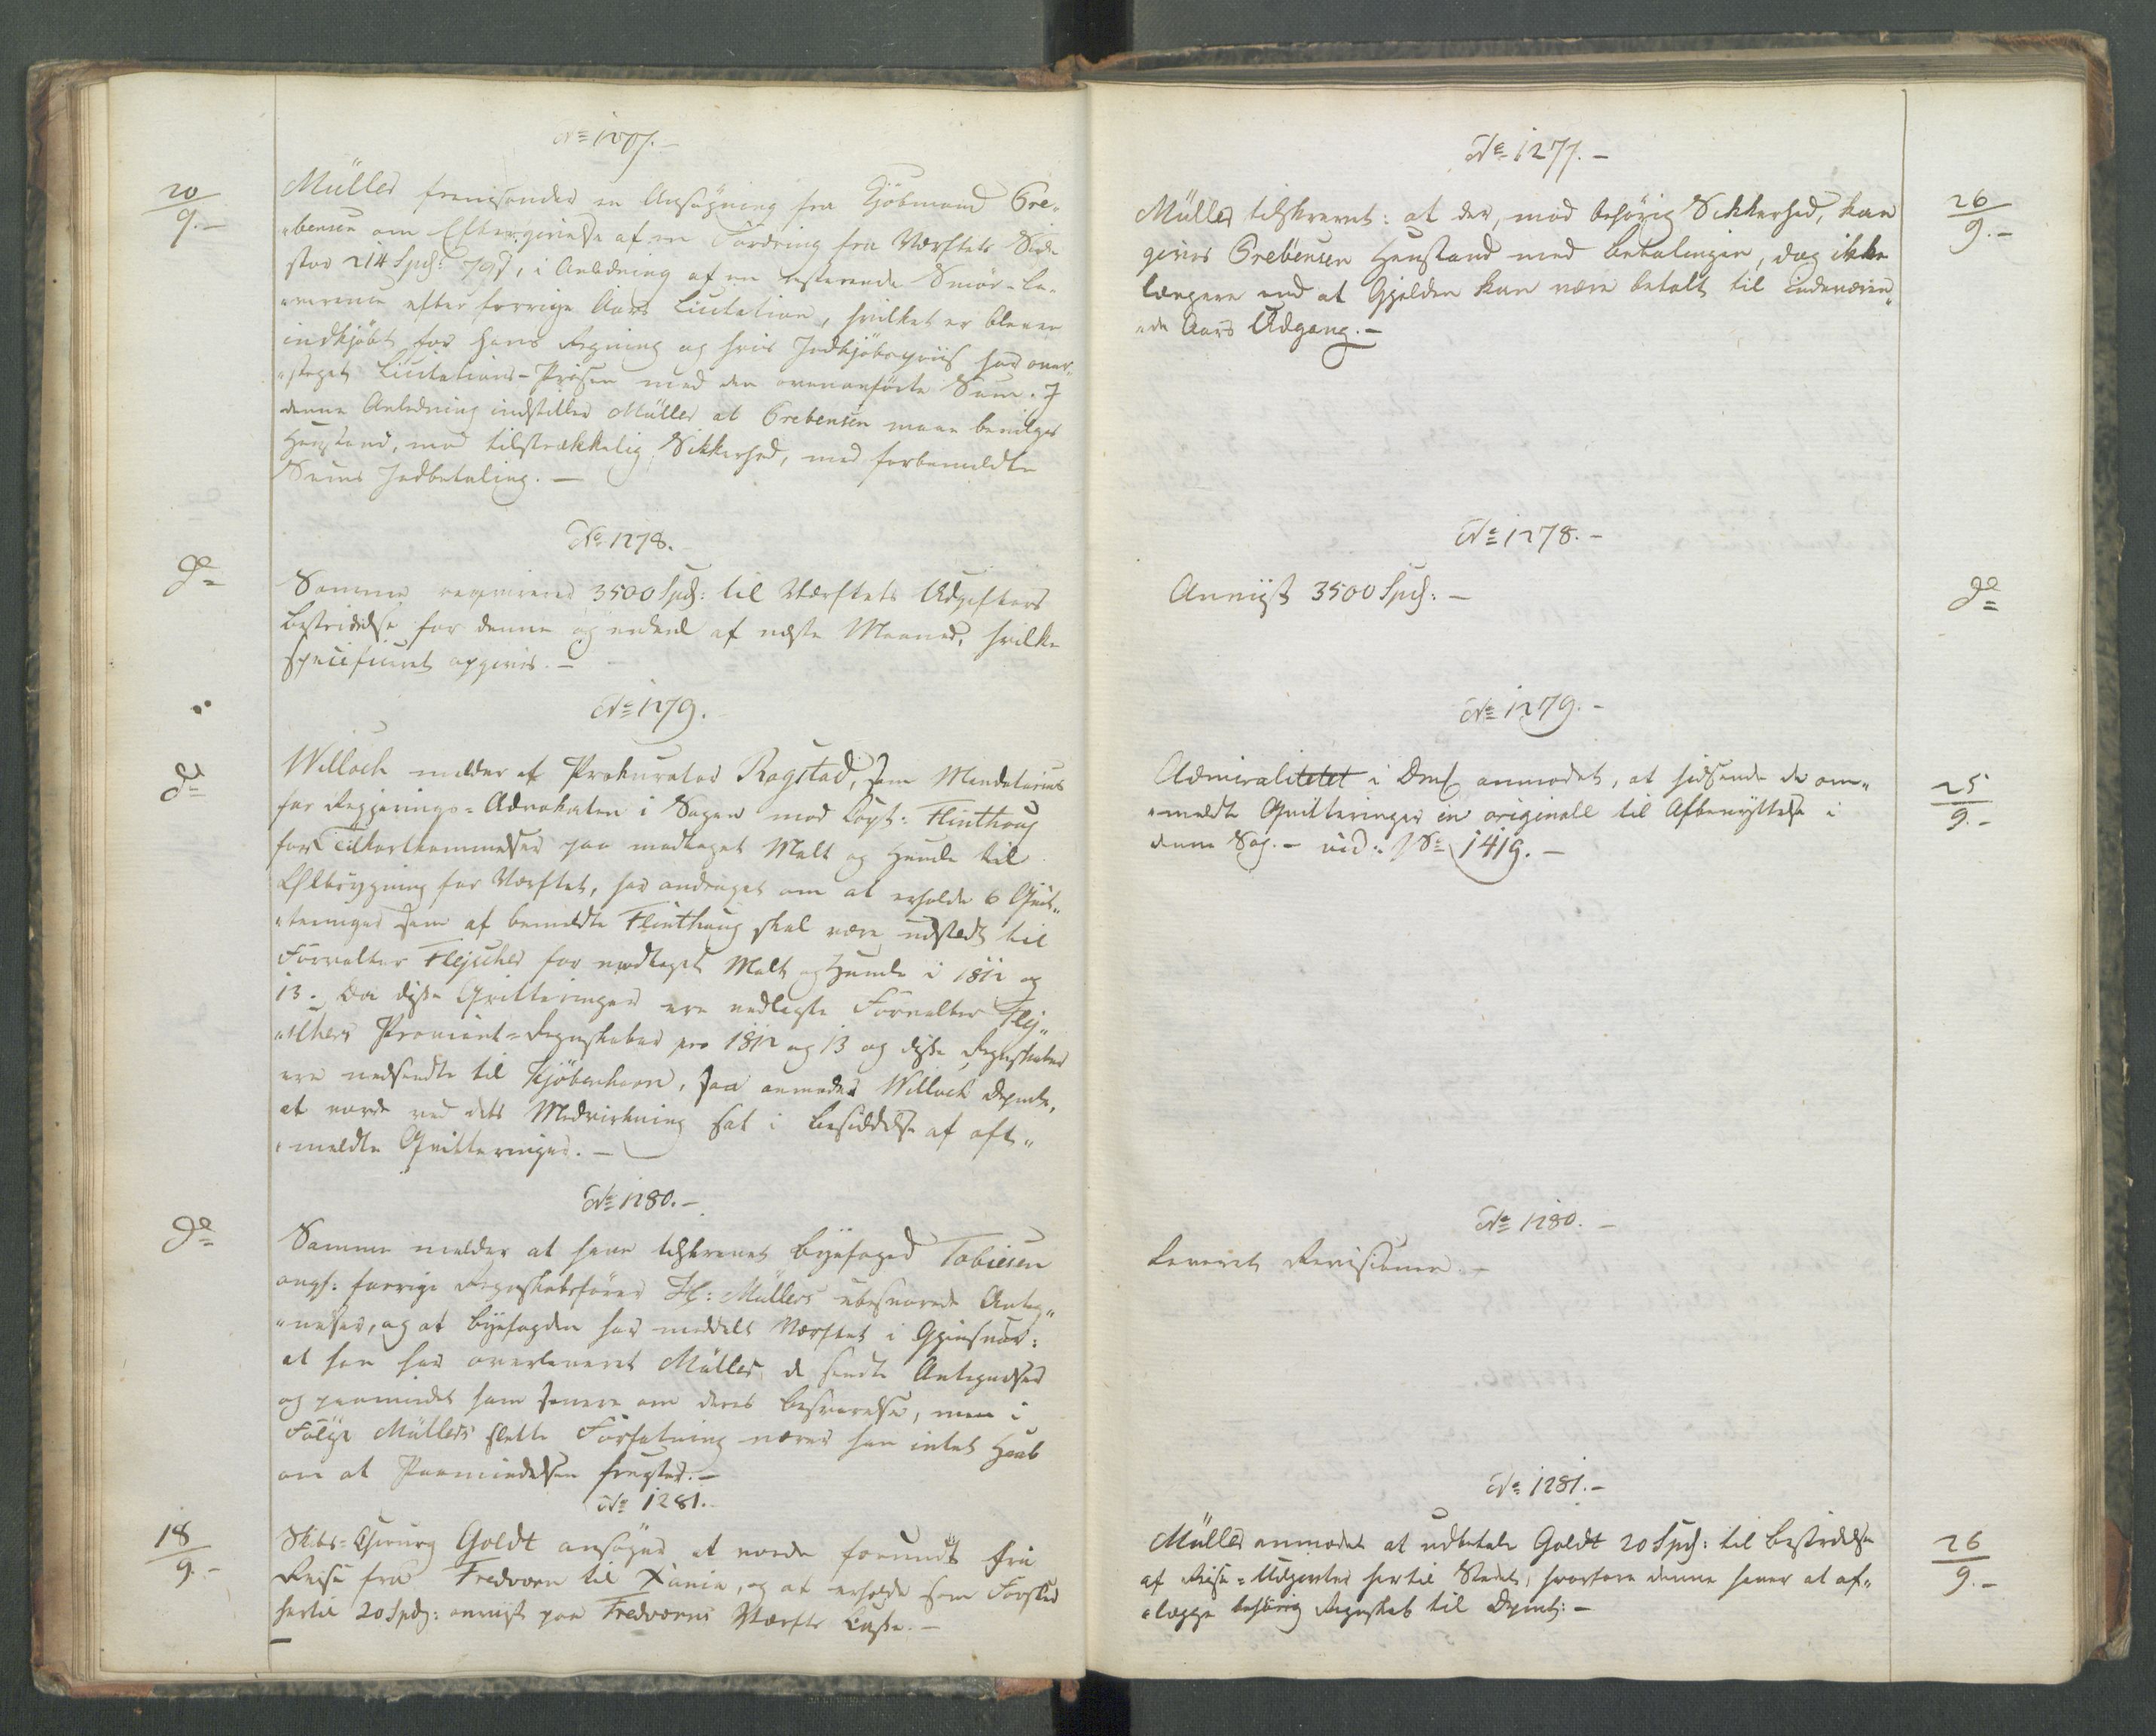 No 1277.-
20/9.-
Müller fremsender en Ansøgning fra Kjøbmand Gre„
„bensen om Eftergivelse af en Fordring fra Værftets Side
stor 214 Spd: 70 s, i Anledning af en resterende Smør-Le„
„verance efter forrige Aars Licitation, hvilket er bleven
indkjøbt for hans Regning og hvis Indkjøbspriis har over„
„steget Licitations-Prisen med den ovenanførte Sum. I
denne Anledning indstiller Müller at Grebensen maae bevilges
Henstand, mod tilstrækkelig Sikkerhed, med forbemeldte
Sums Indbetaling. -
No 1278.
do
Samme reqvirerer 3500 Spd: til Værftets Udgifters
Bestridelse for denne og endeel af næste Maaned, hvilke
specificeret opgives. -
No 1279.
do
Willoch melder at Prokurator Rogstad, som Mandatarius
for Regjerings-Advokaten i Sagen mod Capt: Flinthoug
for Tilkortkommelser paa modtaget Malt og Humle til
Ølbrygning for Værftet, har andraget om at erholde 6 Qvit„
„teringer som af bemeldte Flinthoug skal være udstedt til
Forvalter Flejscher for modtaget Malt og Humle i 1812 og
13. Da disse Qvitteringer ere vedlagte Forvalter Flej„
„schers Proviant-Regnskaber pro 1812 og 13 og disse Regnskaber
ere nedsendte til Kjøbenhavn, saa anmoder Willoch Depmte,
at vorde ved dets Medvirkning sat i Besiddelse af oft„
„meldte Qvitteringer. -
No 1280. -
do
Samme melder at have tilskrevet Byefoged Tobiesen
angd: forrige Regnskabsfører H: Müllers ubesvarede Anteg„
„nelser, og at Byefogden har meddelt Værftet i Gjensvar:
at han har overleveret Müller de sendte Antegnelser
og paamindet ham senere om deres Besvarelse, men i
Følge Müllers slette Forfatning nærer han intet Haab
om at Paamindelsen frugter. -
No 1281.
18/9.-
Skibs-Chirurg Goldt ansøger at vorde forundt fri
Reise fra Fredværn til Xania, og at erholde som Forskud
hertil 20 Spd: anviist paa Fredværns Værfts Casse. -
No 1277. -
Müller tilskrevet: at der, mod behørig Sikkerhed, kan
gives Grebensen Henstand med Betalingen, dog ikke
længere end at Gjelden kan være betalt til indeværen„
„de Aars Udgang. -
26/9.-
No 1278. -
Anviist 3500 Spd: -
do
No 1279. -
Admiralitetet i Dmk anmodet, at hidsende de om„
„meldte Qvitteringer in originali til Afbenyttelse i
denne Sag. - vid: No 1419. -
25/9.-
No 1280. -
Leveret Revisionen. -
No 1281. -
Müller anmodet at udbetale Goldt 20 Spd: til Bestridelse
af Reise-Udgivter hertil Stedet, hvorfore denne haver at af„
„lægge behørig Regnskab til Depmt: -
26/9.-